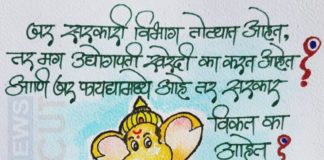 जर सरकारी विभाग तोट्यात आहेत,
तर मग उद्योगपती खरेदी का करत आहेत ?
आणि जर फायद्यामध्ये आहे तर सरकार
विकत का
आहेत ?